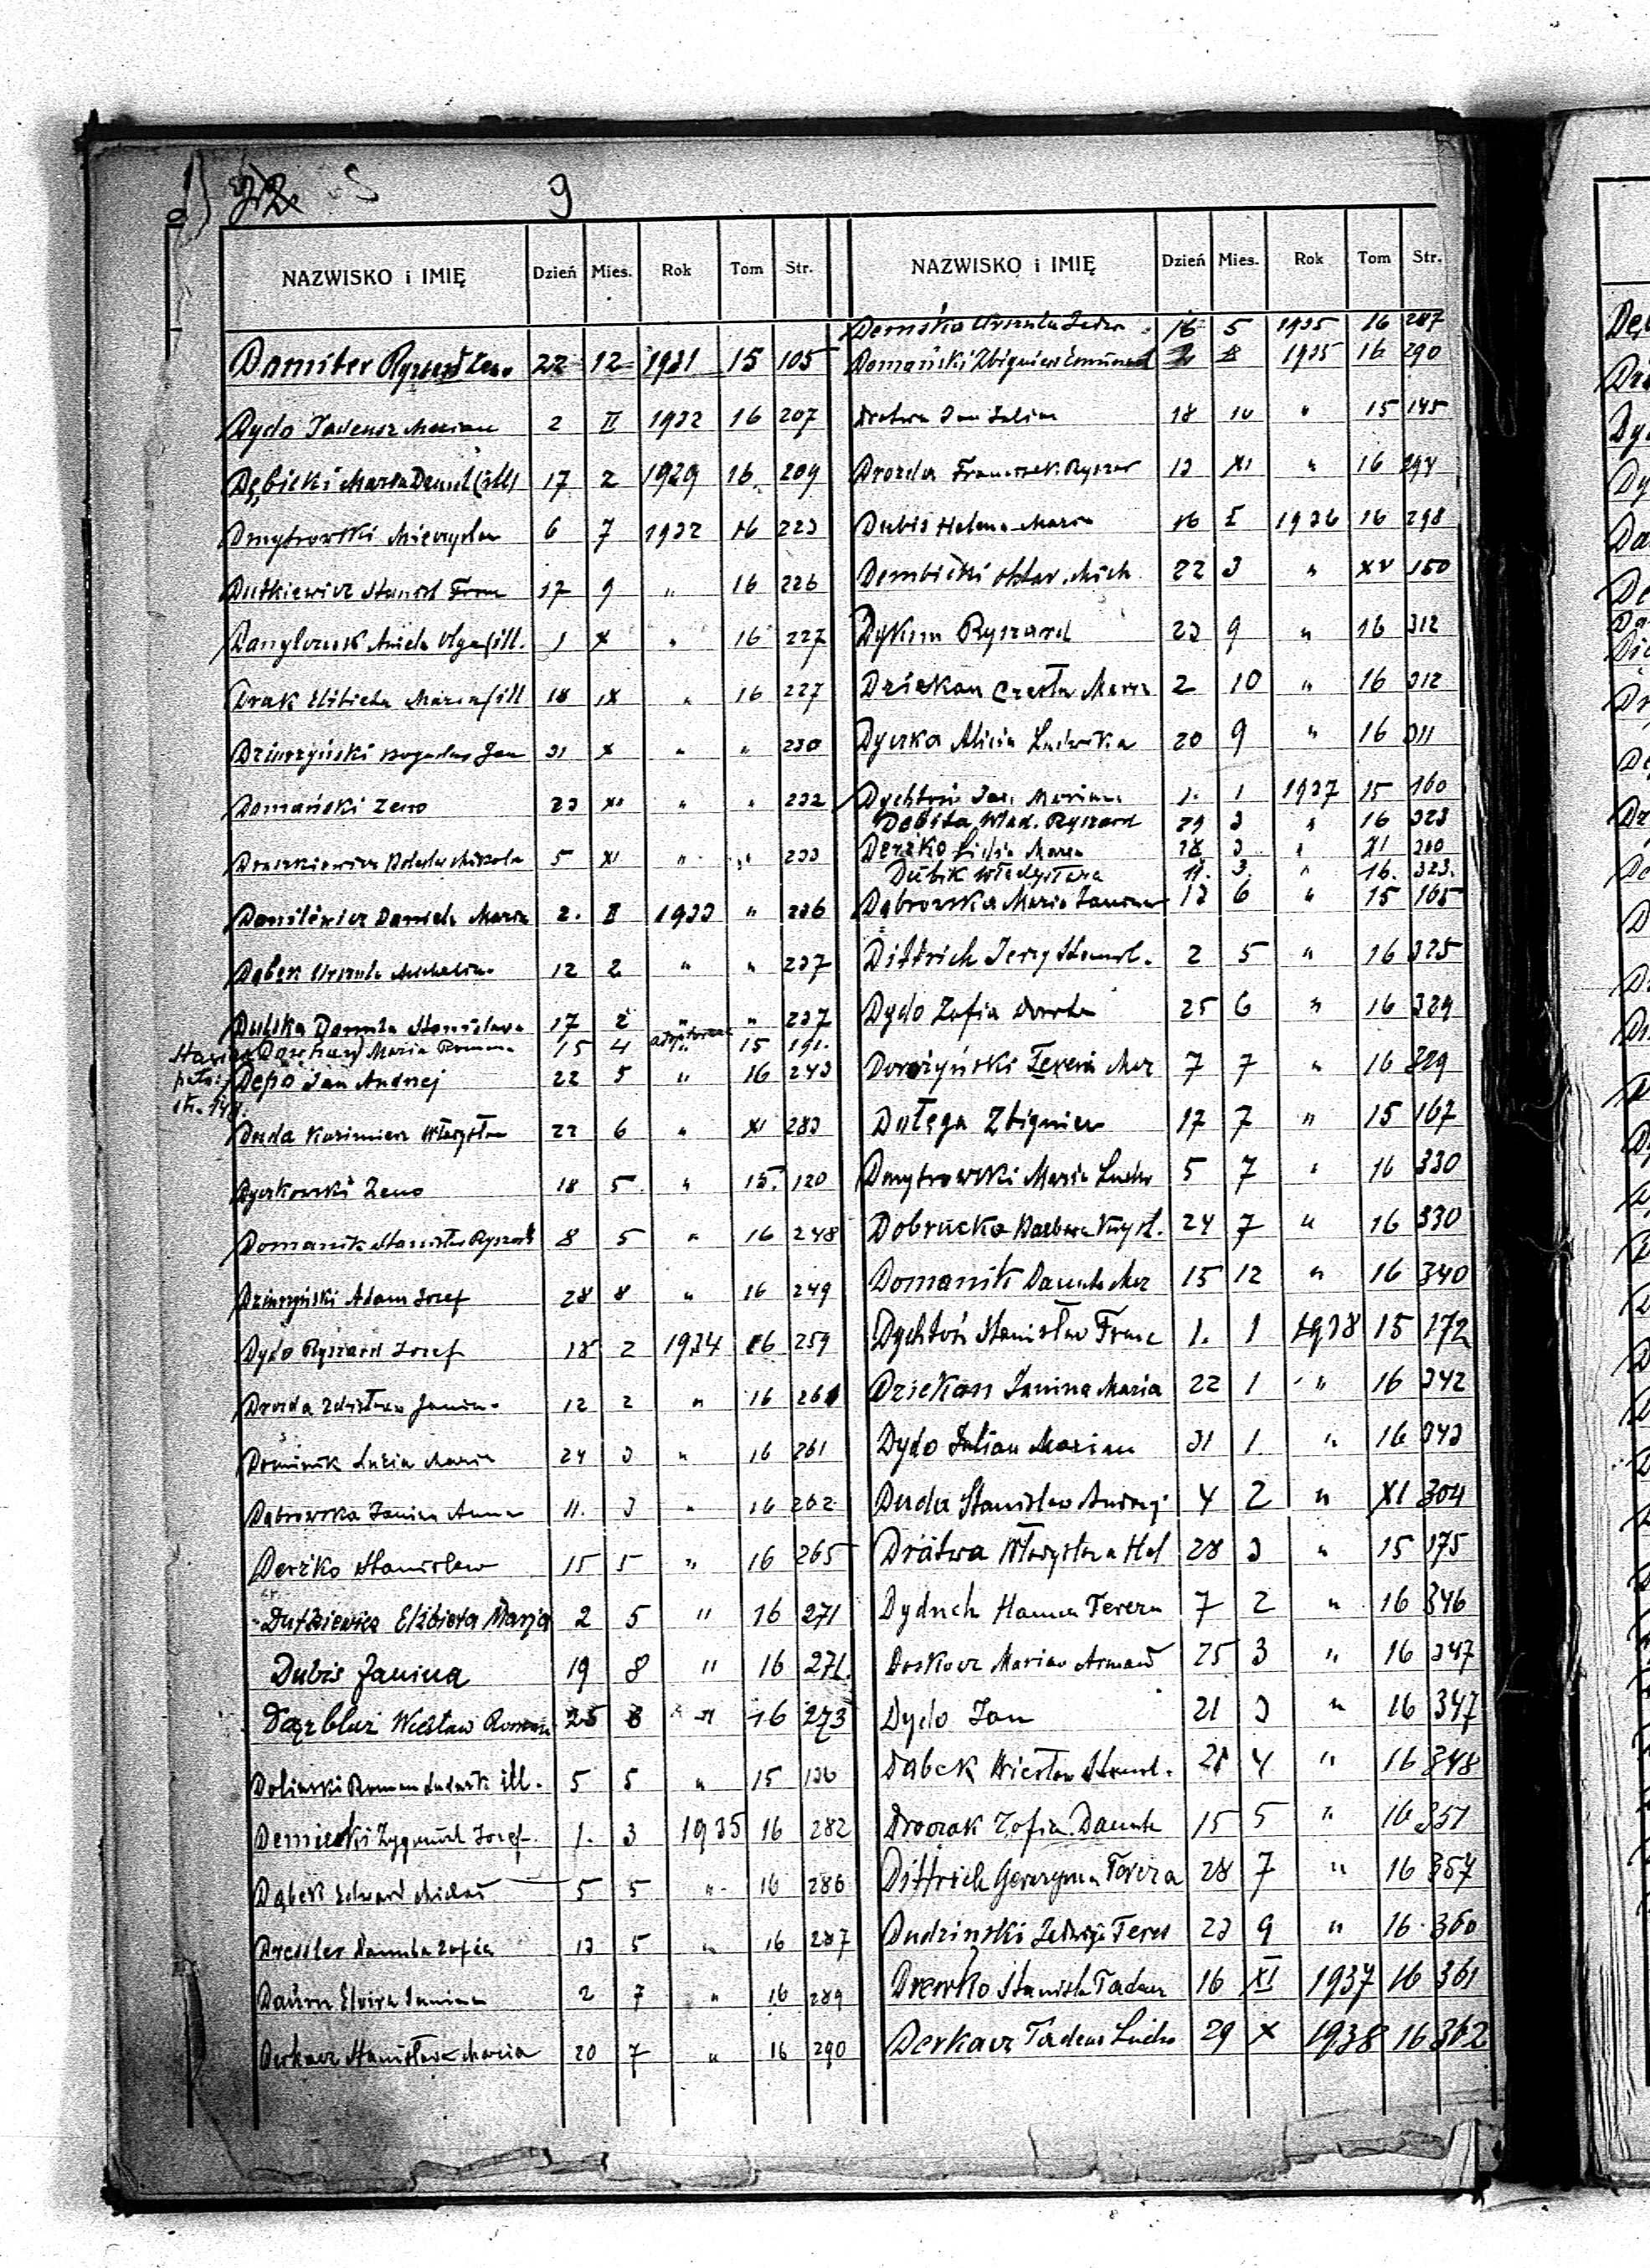 9
NAZWISKO i IMIĘ Dzień Mies. Rok Tom Str.
Damiter Ryszard 22 12 1931 15 105
Dydo Tadeusz Marian 2 II 1932 16 207
Dębicki 17 2 1929 16 209
Dmytrowski Mieczysław 6 7 1932 16 223
Dutkiewicz 17 9 " 16 226
Aniela Olga ill. 1 X " 16 227
Drak Elżbieta Maria ill 18 IX " 16 227
Dziurzyński Jan 31 X " " 230
Domański Zeno 23 XI " " 232
5 XI " " 233
Danilewicz Daniela Maria 2. II 1933 " 236
Dąbek Urszula 12 2 " " 237
Danuta Stanisława 17 2 " " 237
Maria 15 4 " 15 191.
Depo Jan Andrzej 22 5 " 16 243
Duda Kazimierz Władysław 22 6 " XI 283
Dyczkowski Zeno 18 5 " 15. 120
Domanik Stanisław Ryszard 8 5 " 16 248
Dziurzyński Adam Józef 28 8 " 16 249
Dydo Ryszard Józef 18 2 1934 16 259
Drozda Zdzisława Janina 12 2 " 16 261
Dominik Łucia Maria 24 3 " 16 261
Dąbrowska Janina Anna 11. 3 " 16 262
Derżko Stanisław 15 5 " 16 265
Dutkiewicz Elżbieta Marja 2 5 " 16 271
Dubis Janina 19 8 " 16 271.
Wiesław Roman 25 8 " 16 273
Doliński Roman ill. 5 5 " 15
Zygmunt Józef 1. 3 1935 16 282
Dąbek Edward Michał 5 5 " 16 286
Dressler Danuta Zofia 13 5 " 16 287
Daum Elvira Janina 2 7 " 16 289
Derkacz Stanisława Maria 20 7 " 16 290
NAZWISKO i IMIĘ Dzień Mies. Rok Tom Str.
Demska Urszula 16 5 1935 16 287
Domański Zbigniew 1935 16 290
Dratwa Jan Julian 18 10 " 15 145
Drozda Franciszek Ryszard 13 XI " 16 294
Dubis Helena Maria 16 I 1936 16 298
Dembicki 22 3 " XV 150
Dykun Ryszard 23 9 " 16 312
Dziekan Czesła Maria 2 10 " 16 312
Dyczka Alicia Ludwika 20 9 " 16 311
Dychtoń Marian 1. 1 1937 15 160
Debita Wład. Ryszard 29 3 " 16 323
Derżko Lidia Maria 28 3 " XI 300
Dubik Władysława 11. 3. " 16. 323.
Dąbrowska Maria Janina 13 6 " 15 165
Dittrich Jerzy 2 5 " 16 325
Dydo Zofia Dorota 25 6 " 16 329
Dorożyński 7 7 " 16 329
Dulęga Zbigniew 17 7 " 15 167
Dmytrowski Maria 5 7 " 16 330
Dobrucka Barbara 24 7 " 16 330
Domanik Danuta Mar 15 12 " 16 340
Dychtoń Stanisław Franc 1. 1 1938 15 172
Dziekan Janina Maria 22 1 " 16 342
Dydo Julian Marian 31 1 " 16 343
Duda Stanisław Andrzej 4 2 " XI 304
Dratwa Władysława Hel 28 3 " 15 175
Dyduch Hanna Teresa 7 2 " 16 346
Doskocz Marian 25 3 " 16 347
Dydo Jan 21 3 " 16 347
Dąbek Wiesław 21 4 " 16 348
Zofia Danuta 15 5 " 16 351
Dittrich Teresa 28 7 " 16 357
Dudzinski Jadwiga Teres 23 9 " 16 360
Drewko Stanisła Tadeusz 16 XI 1937 16 361
Derkacz Tadeusz 29 X 1938 16 362